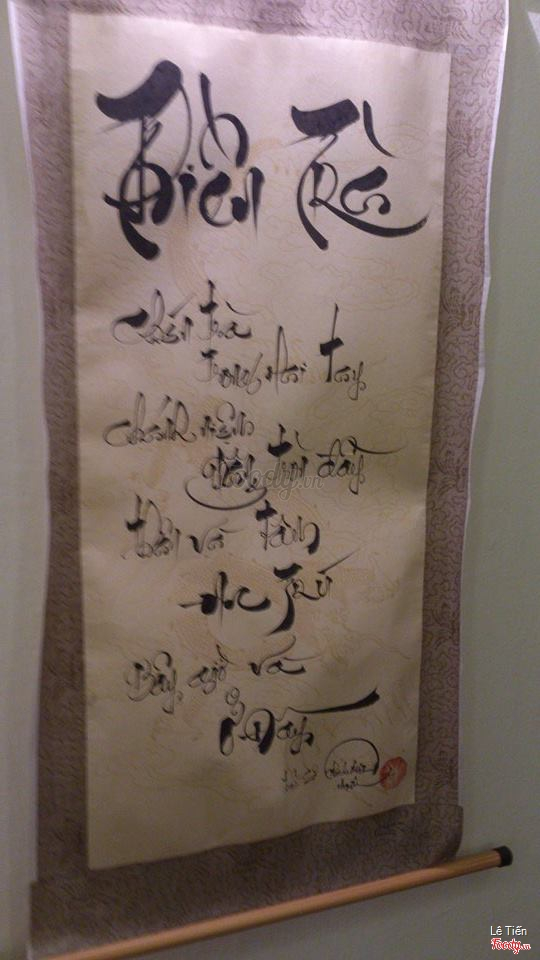 Thiền Trà
chén trà
trong hai tay
chánh niệm
nâng tròn đầy
thân và tâm
an trú
Bây giờ và
ở đây
Foody.vn
Lê Tiến
Foody.vn